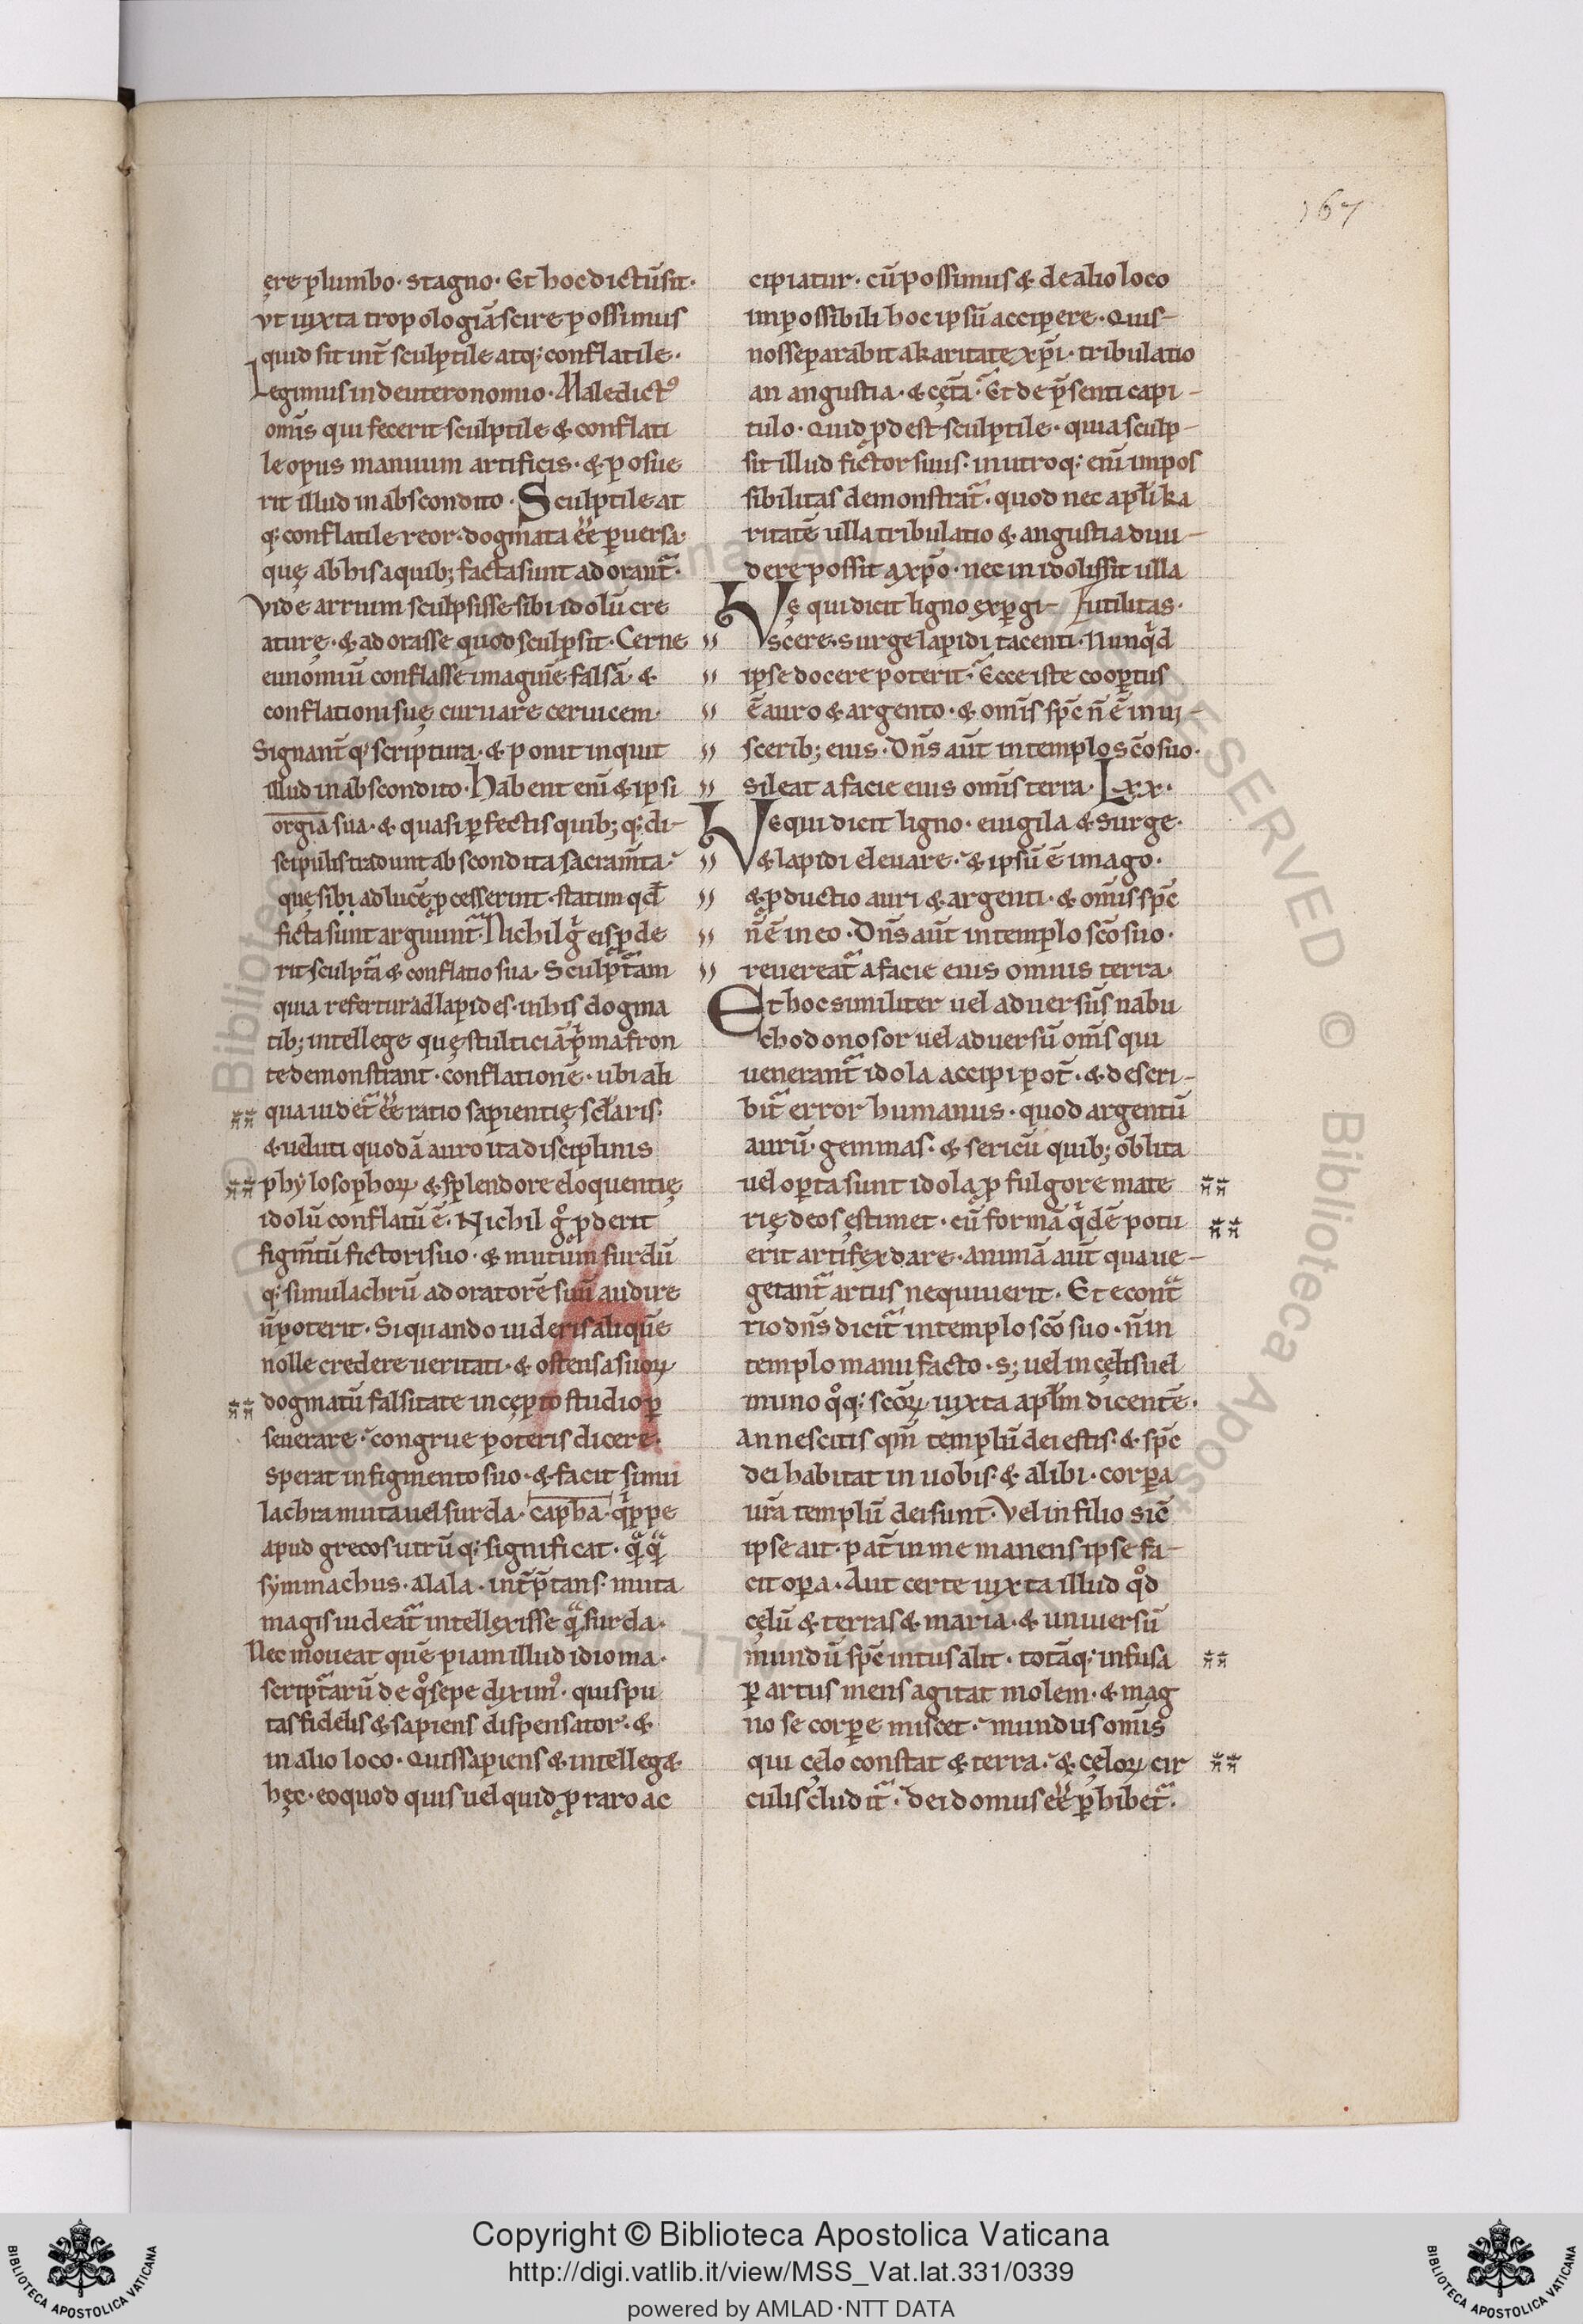 167
ęre plumbo· stagno· Et hoc dictū sit·
vt iuxta tropologiā scire possimus
quid sit int̄ sculptile atq; conflatile·
Legimus in deuteronomio· Maledictꝰ
om̄s qui fecerit sculptile & conflati
le opus manuum artificis· & posue
rit illud in abscondito· Sculptile at
q; conflatile reor· dogmata ēē ꝑuersa·
quę ab his a quib; facta sunt adorant̄·
Vide arrium sculpsisse sibi idolū cre
aturę· & adorasse quod sculpsit· Cerne
eunomiū conflasse imaginē falsā· &
conflationi suę curuare ceruicem·
Signant̄ q; scriptura· & ponit inquit
illud in abscondito· Habent eni̅ & ipsi
orgia sua· & quasi ꝑfectis quib; q; di-
scipulis tradunt abscondita sacram̄ta·
quę sibi ad lucē ꝓcesserint· statim qd̄
ficta sunt arguunt̄· Nichil gͥ eis ꝓde
rit sculpt̄a & conflatio sua· Sculpt̄am
quia refertur ad lapides· in his dogma
tib; intellege quę stulticiā pͥma fron
te demonstrant· conflationē· ubi ali
qua uidet̄ ēē ratio sapientię sc̄laris·
& ueluti quodā auro ita disciplinis
phylosophoꝝ & splendore eloquentię
idolū conflatū ē· Nichil gͦ ꝓderit
figm̄tū fictori suo· & mutum surdū
q; simulachrū adoratorē suū audire
n̄ poterit· Si quando uideris aliquē
nolle credere ueritati· & ostensa suoꝝ
dogmatū falsitate in cępto studio ꝑ
seuerare· congrue poteris dicere·
sperat in figmento suo· & facit simu
lachra muta uel surda· capha· qͥppe
apud grecos utrūq; significat· qͣqͣ
symmachus· alala· int̄p̄tans· muta
magis uideat̄ intellexisse qͣ surda·
Nec moueat quē piam illud idioma·
script̄arū de qͦ sepe diximꝰ· quis pu
tas fidelis & sapiens dispensator· &
in alio loco· Quis sapiens & intelleg&
hęc· eo quod quis uel quid ꝓ raro ac
cipiatur· cū possimus & de alio loco
impossibili hoc ipsū accipere· Quis-
nos separabit a karitate xp̄i· tribulatio
an angustia· & cęt̄a· Et de p̄senti capi-
tulo· Quid ꝓdest sculptile· quia sculp-
sit illud fictor suus· in utroq; eni̅ impos
sibilitas demonstrat̄· quod nec apl̄i ka
ritatē ulla tribulatio & angustia diui-
dere possit a xp̄o· nec in idolis sit ulla
Vę qui dicit ligno expgi- utilitas·
scere· surge lapidi tacenti· Nunqͥd
ipse docere poterit· Ecce iste coopertus
ē auro & argento· & om̄is sp̄c n̄ ē in ui-
scerib; eius· Dn̄s aut̄ in templo sc̄o suo·
sileat a facie eius om̄is terra· Lxx·
Ve qui dicit ligno· euigila & surge·
& lapidi eleuare· & ipsū ē imago·
& ꝓductio auri & argenti· & om̄is sp̄c
n̄ ē in eo· Dn̄s aut̄ in templo sc̄o suo·
reuereat̄ a facie eius omnis terra·
Et hoc similiter uel aduersūs nabu
chodonosor uel aduersū om̄s qui
uenerant̄ idola accipi pot̄· & descri-
bit̄ error humanus· quod argentū
aurū· gemmas· & sericū quib; oblita
uel opta sunt idola ꝓ fulgore mate
rię deos ęstimet· cū formā qͥdē potu
erit artifex dare· animā aut̄ qua ue-
getant̄ artus nequiuerit· Et e cont̄
rio dn̄s dicit̄ in templo sc̄o suo· n̄ in
templo manu facto· s; uel in cęlis uel
muno qͦq; sc̄oꝝ iuxta apl̄m dicentē·
An nescitis qm̄ templū dei estis· & sp̄c
dei habitat in uobis· & alibi· corpora
ur̄a templū dei sunt· Vel in filio sic̄
ipse ait· pat̄ in me manens ipse fa-
cit opera· Aut certe iuxta illud qͦd
cęlū & terras & maria· & uniuersū
mundū sp̄c intus alit· totāq; infusa
ꝑ artus mens agitat molem· & mag
no se corpore miscet· mundus om̄is
qui cęlo constat & terra· & cęloꝝ cir
culis cludit̄· dei domus ēē ꝑhibet̄·
Copyright © Biblioteca Apostolica Vaticana
http://digi.vatlib.it/view/MSS_Vat.lat.331/0339
powered by AMLAD·NTT DATA
BIBLIOTECA APOSTOLICA VATICANA
BIBLIOTECA APOSTOLICA VATICANA